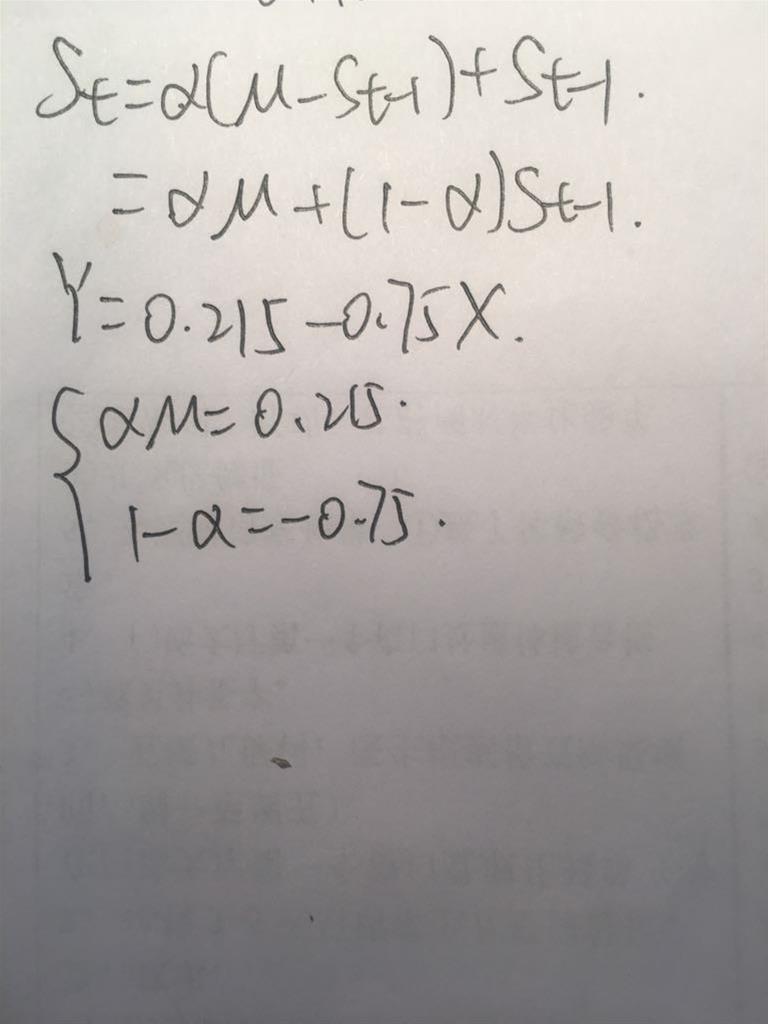 St=α(μ-St-1)+St-1.
=αμ+(1-α)St-1.
Y=0.215-0.75X.
{αμ=0.215.
1-α=-0.75.